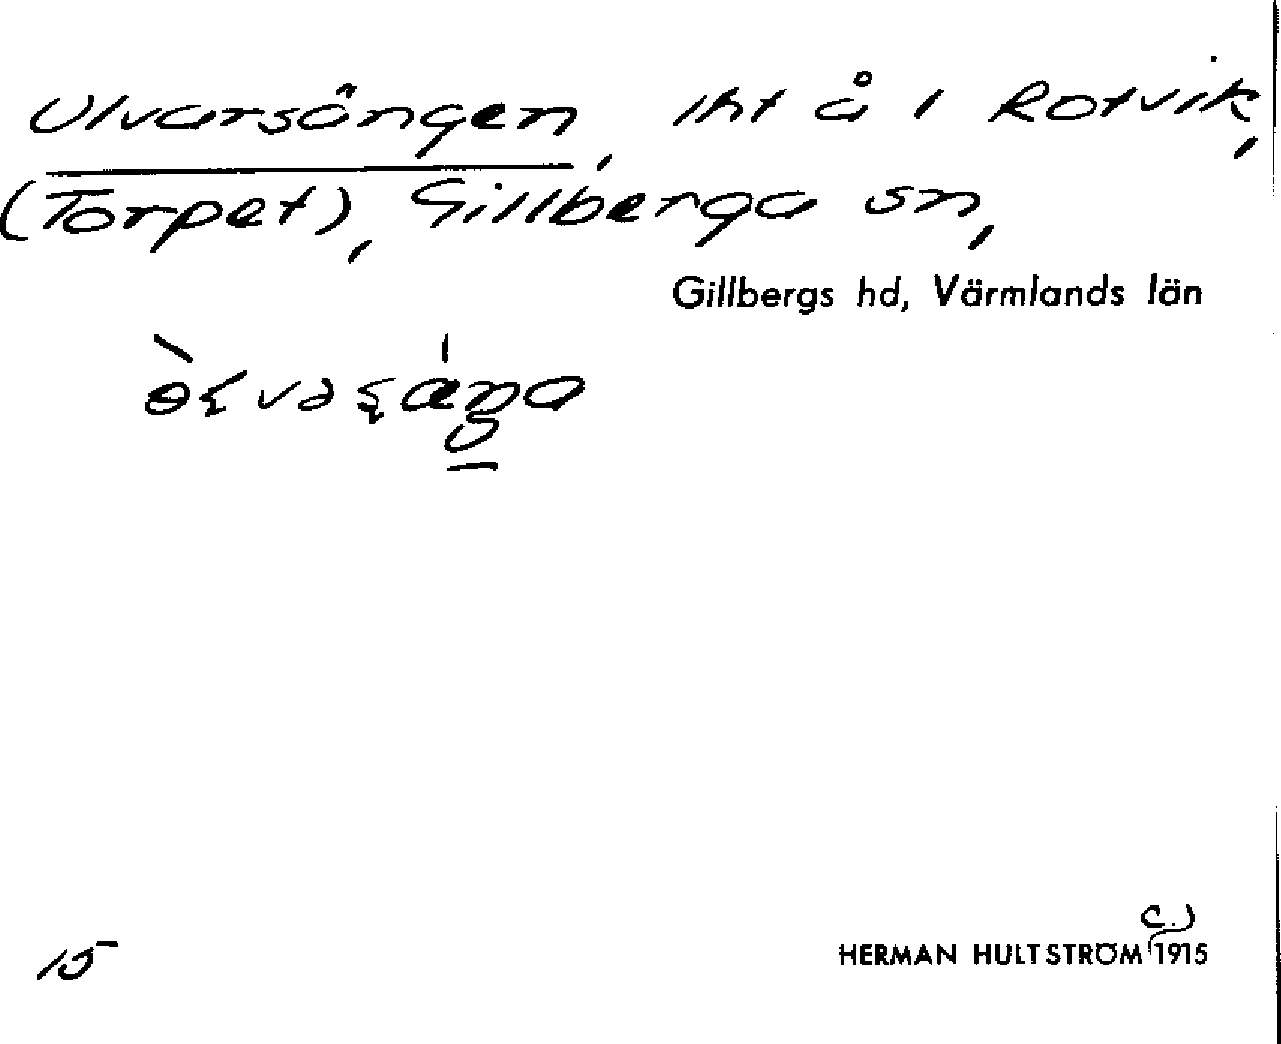 Ulvarsängen, iht å i Rotvik,
(Torpet), Gillberga sn,
Gillbergs hd, Värmlands län
15
C.)
HERMAN HULTSTRÖM 1915